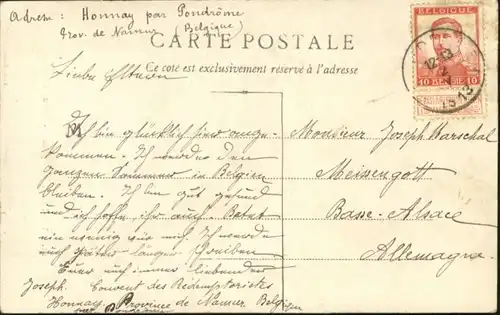 Adresse: Honnay par Pondrôme
Prov. de Namur (Belgique)
CARTE POSTALE
Ce coté est exclusivement réservé à l'adresse
BELGIQUE
10 BELGIË 10
12-13
1913
Liebe Eltern
M
Ich bin glücklich hier ange-
kommen. Ich werde den
ganzen Sommer in Belgien
bleiben. Ich bin gut gesund
und ich hoffe, ihr auch. Betet
ein wenig für mich. Ich werde
euch später länger schreiben
Euer euch immer liebender
Joseph. Couvent des Rédemptoristes
Honnay, Province de Namur, Belgien
par Pondrôme
Monsieur Joseph Marschal
Meisengott
Basse-Alsace
Allemagne